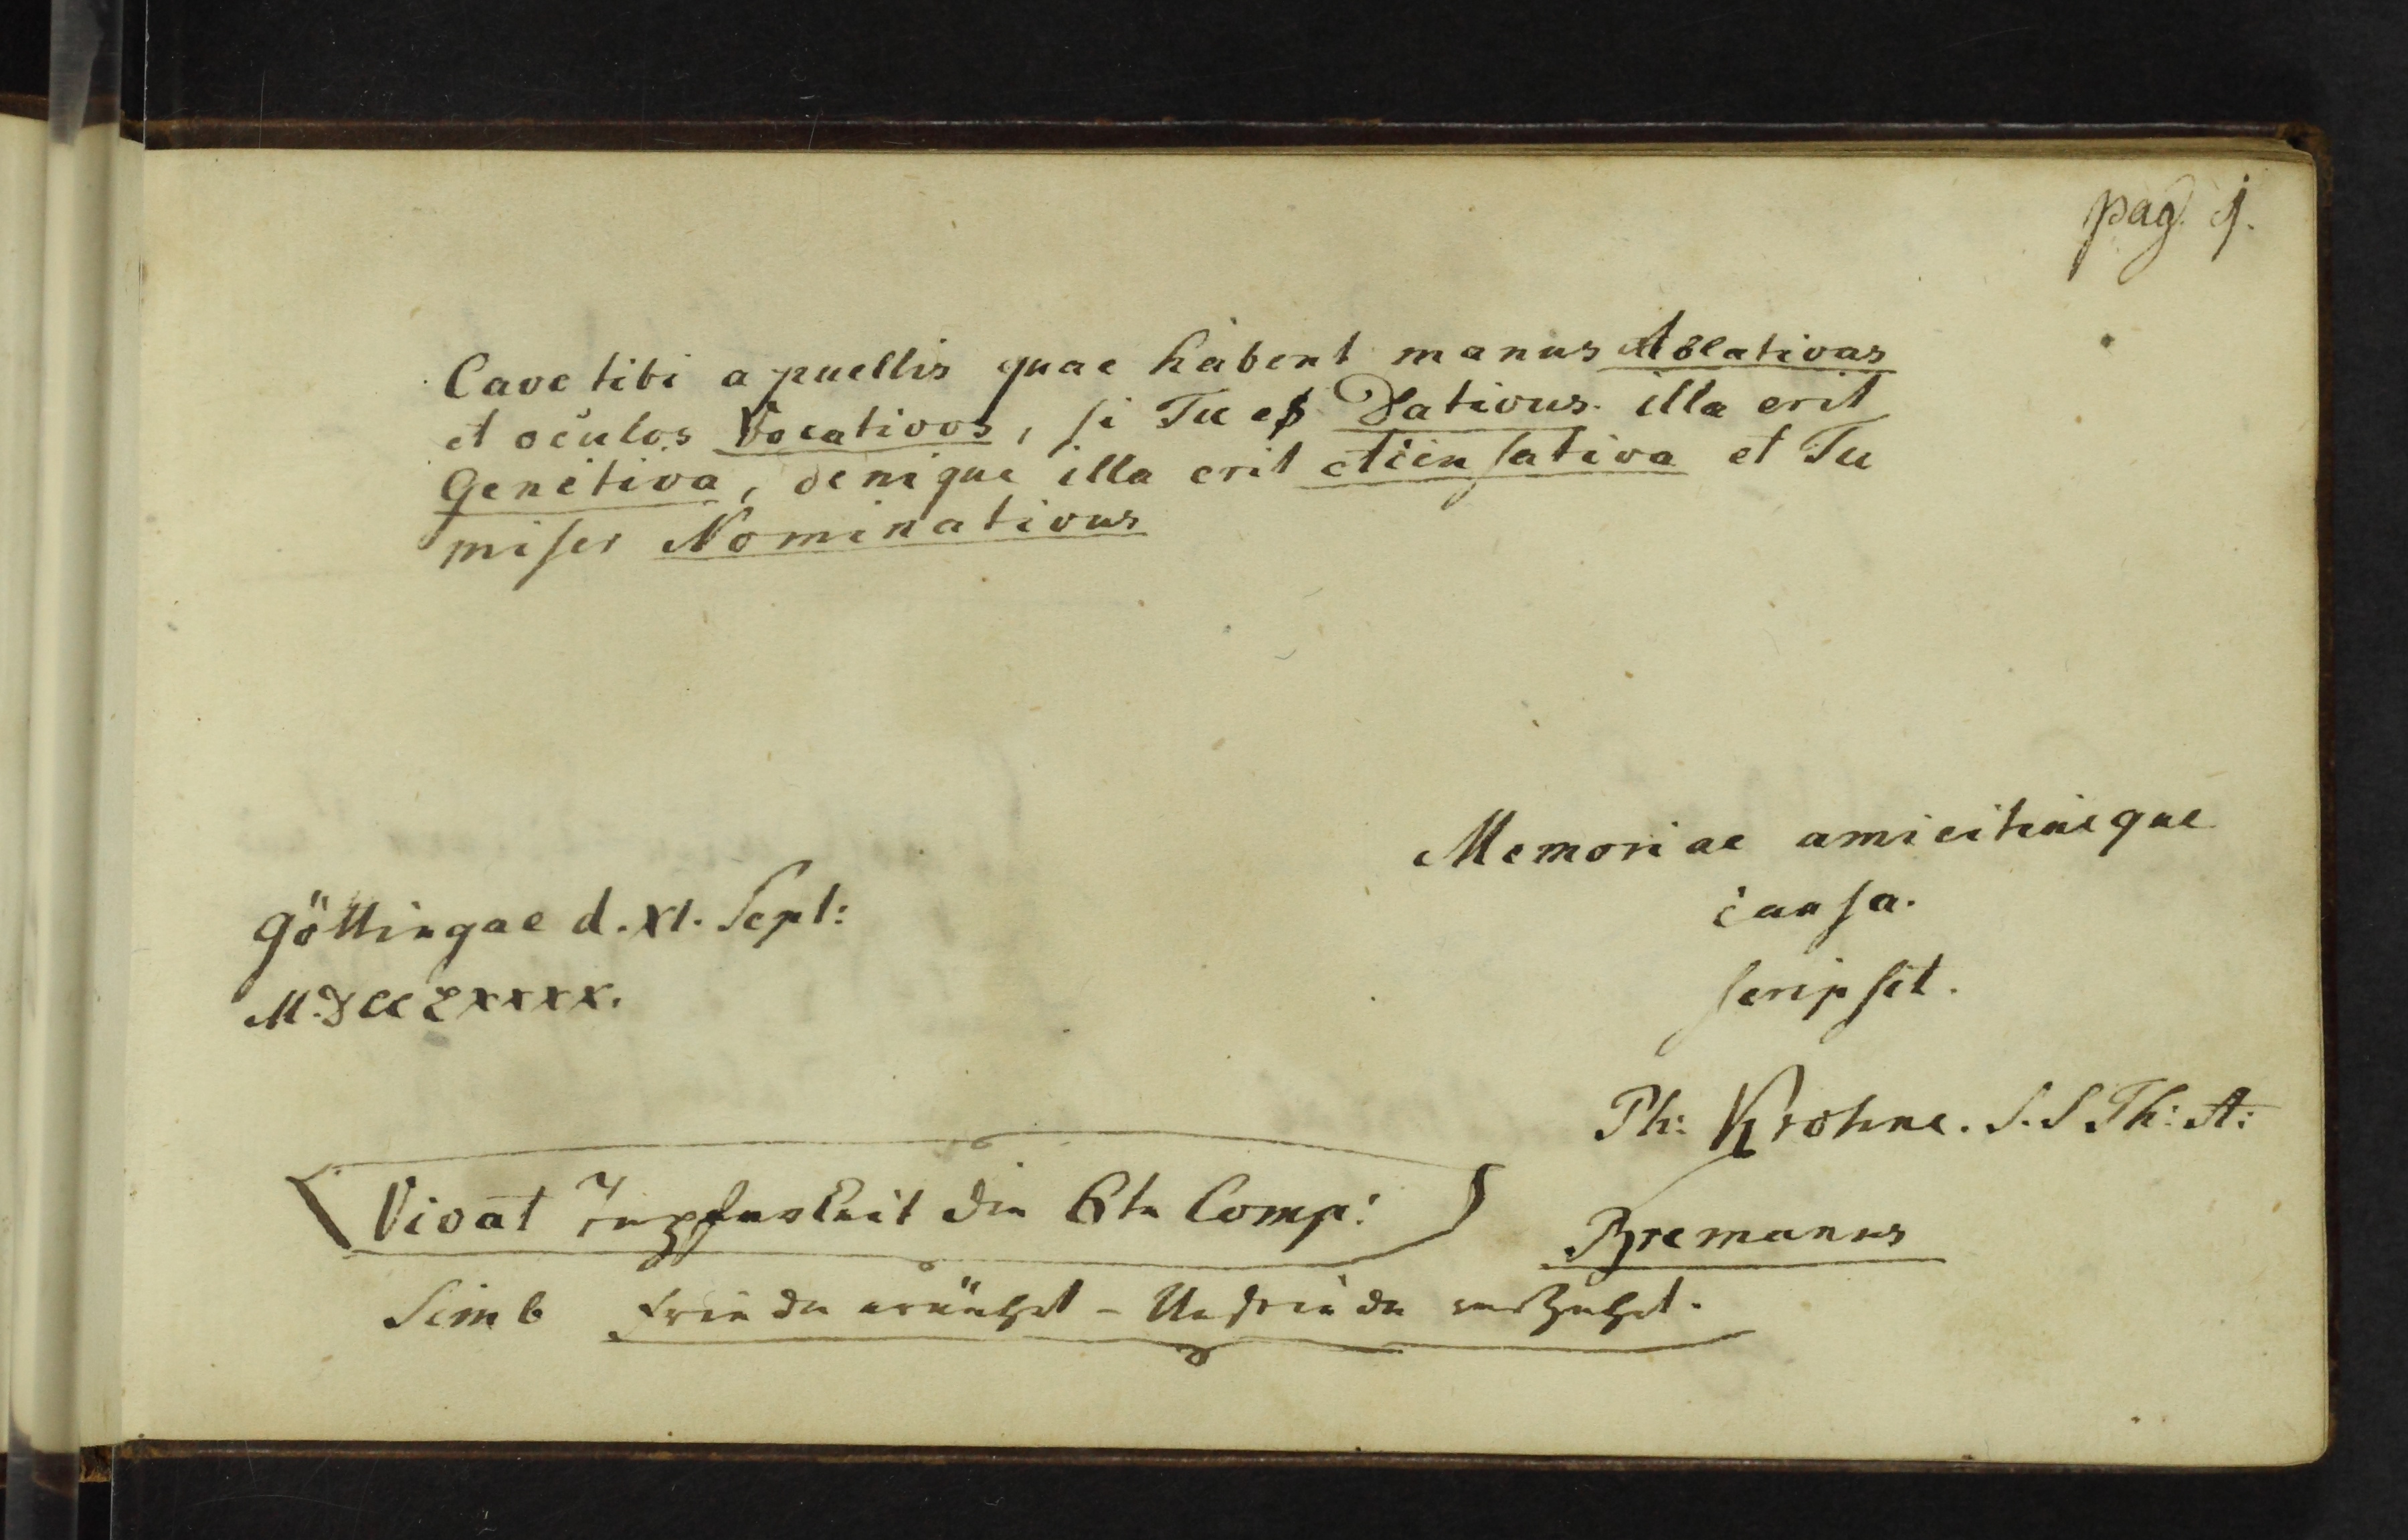 pag. 1.
Cave tibi a puellis quae habent manus Ablativas
et oculos Vocativos, si Tu es Dativus. illa erit
Genetiva, denique illa erit Accusativa et Tu
miser Nominativus
Memoriae amicitiaeque
causa.
scripsit.
Göttingae d. XI. Sept:
M.DCCLXXXX.
Ph: Krohne. S. S Th: A:
Bremanus
Vivat die 6te Comp:
Simb Friede ernährt – Unfriede verzehrt.